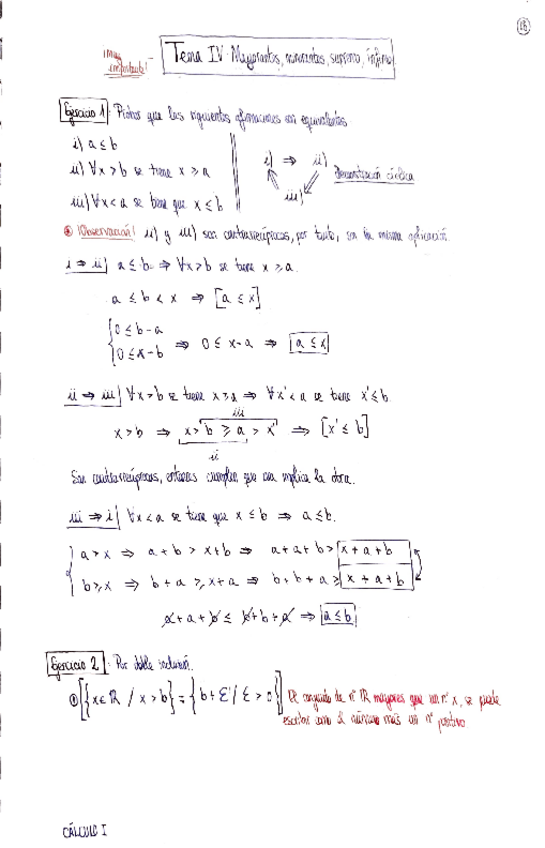 16
¡Muy importante!
Tema IV: Mayorantes, minorantes, supremo, ínfimo
Ejercicio 1: Probar que las siguientes afirmaciones son equivalentes
i) a ≤ b
ii) ∀x > b se tiene x ≥ a
iii) ∀x < a se tiene que x ≤ b
i) ⇒ ii)
iii)
Demostración cíclica
¡Observación! ii) y iii) son contrarrecíprocas, por tanto, son la misma aplicación.
i ⇒ ii) a ≤ b ⇒ ∀x > b se tiene x ≥ a.
a ≤ b < x ⇒ [a ≤ x]
{0 ≤ b-a
{0 ≤ x-b ⇒ 0 ≤ x-a ⇒ a ≤ x
ii ⇒ iii) ∀x > b se tiene x ≥ a ⇒ ∀x' < a se tiene x' ≤ b.
iii
x > b ⇒ x > b ≥ a > x' ⇒ [x' ≤ b]
ii
Son contrarrecíprocas, entonces cumplen que una implica la otra.
iii ⇒ i) ∀x < a se tiene que x ≤ b ⇒ a ≤ b.
a > x ⇒ a + b > x + b ⇒ a + a + b > x + a + b
b ≥ x ⇒ b + a ≥ x + a ⇒ b + b + a ≥ x + a + b
a + a + b ≤ b + b + a ⇒ a ≤ b
Ejercicio 2: Por doble inclusión.
① [{x ∈ ℝ / x > b} = {b + ε / ε > 0}] El conjunto de nº ℝ mayores que un nº x, se puede
escribir como el número más un nº positivo
CÁLCULO I